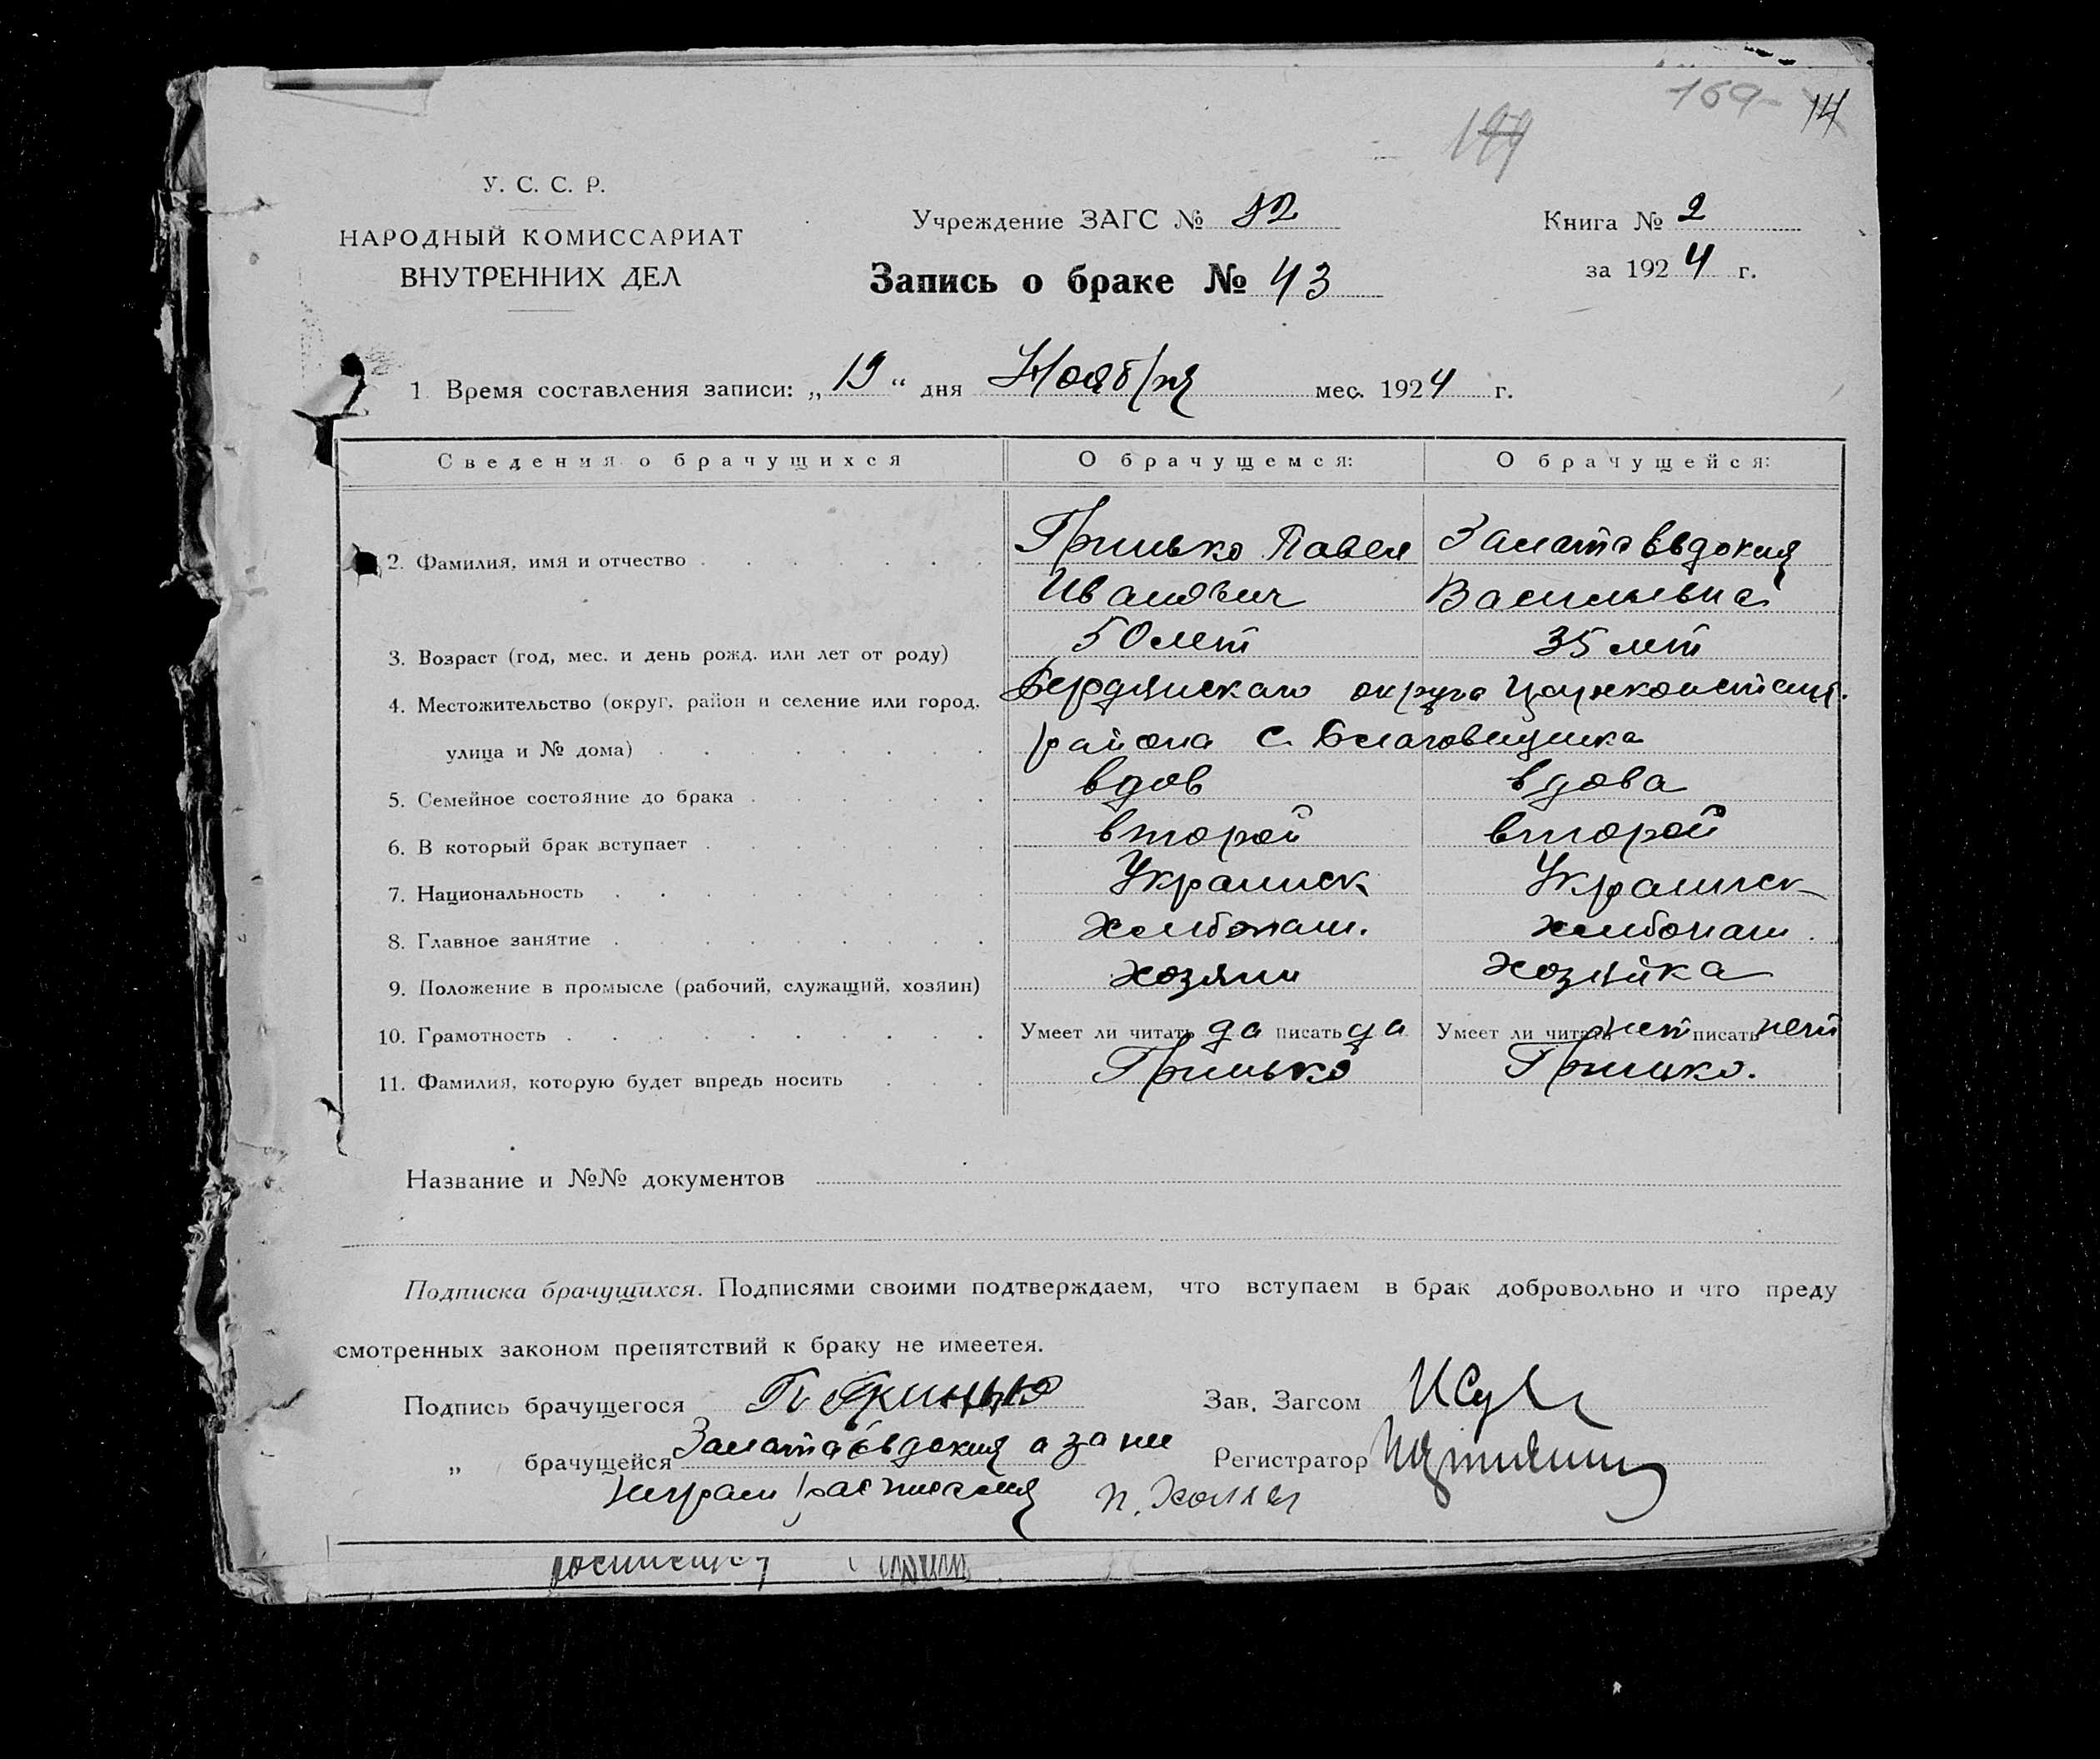 169- 14
199
У. С. С. Р.
НАРОДНЫЙ КОМИССАРИАТ
ВНУТРЕННИХ ДЕЛ
Учреждение ЗАГС № 12
Книга № 2
Запись о браке № 43
за 1924 г.
1. Время составления записи: „19“ дня Ноября мес. 1924 г.
Сведения о брачущихся О брачущемся: О брачущейся:
2. Фамилия, имя и отчество Гринько Павел Евдокия
Иванович Васильевна
3. Возраст (год, мес. и день рожд. или лет от роду) 50 лет 35 лет
4. Местожительство (округ, район и селение или город, Бердянского округа Цареконстант.
улица и № дома) района с. Благовещенка
5. Семейное состояние до брака вдов вдова
6. В который брак вступает второй второй
7. Национальность Украинск Украинск
8. Главное занятие хлебопаш. хлебопаш.
9. Положение в промысле (рабочий, служащий, хозяин) хозяин хозяйка
10. Грамотность Умеет ли читать да писать да Умеет ли читать нет писать нет
11. Фамилия, которую будет впредь носить Гринько Гринько.
Название и №№ документов
Подписка брачущихся. Подписями своими подтверждаем, что вступаем в брак добровольно и что преду
смотренных законом препятствий к браку не имеетея.
Подпись брачущегося П. Гринько Зав. Загсом
„ брачущейся Евдокия а за не Регистратор
играм расписался